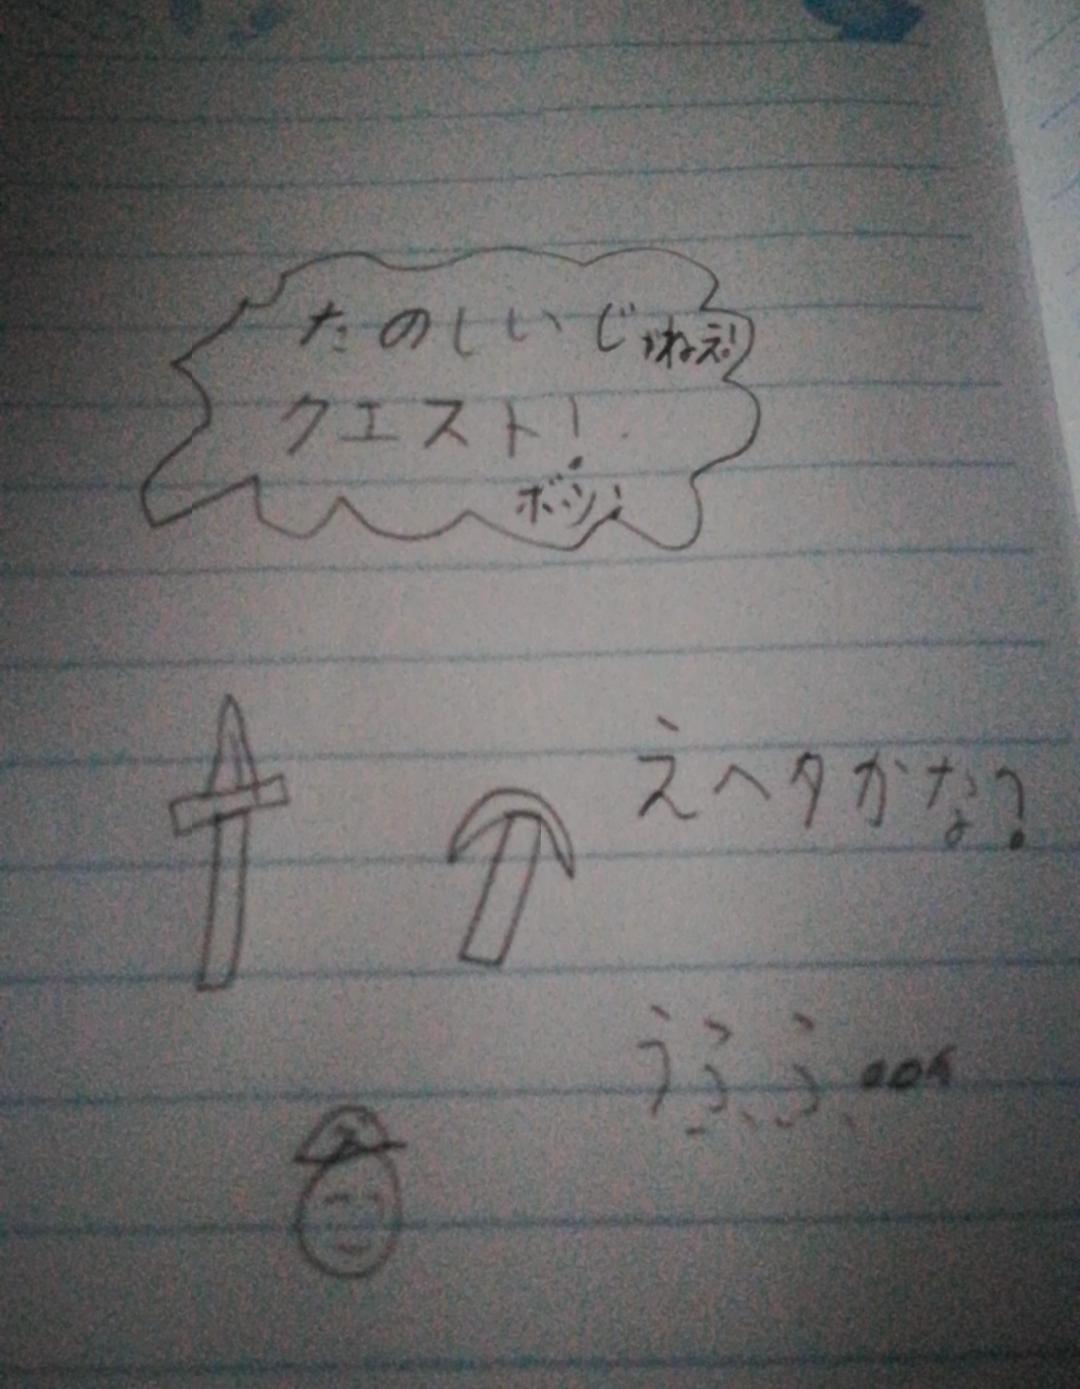 たのしいじゃねえ!
クエスト!
ボツ!
えヘタかな?
うふふ...